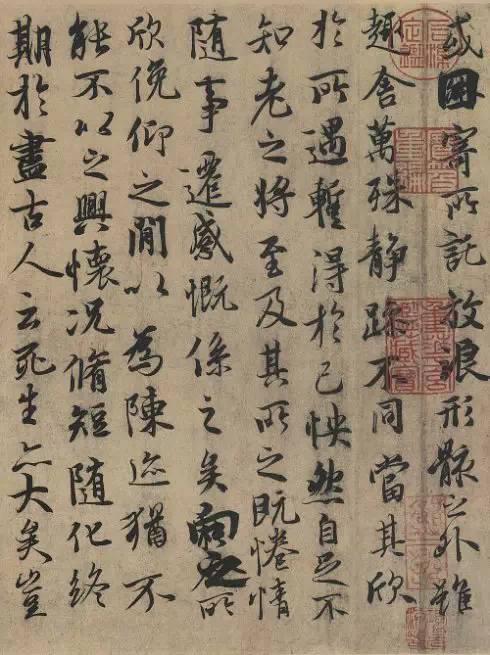 或因寄所託放浪形骸之外雖
趣舍萬殊静躁不同當其欣
於所遇蹔得於己怏然自足不
知老之將至及其所之既惓情
随事遷感慨係之矣向之所
欣俛仰之閒以為陳迹猶不
能不以之興懷況脩短随化終
期於盡古人云死生亦大矣豈